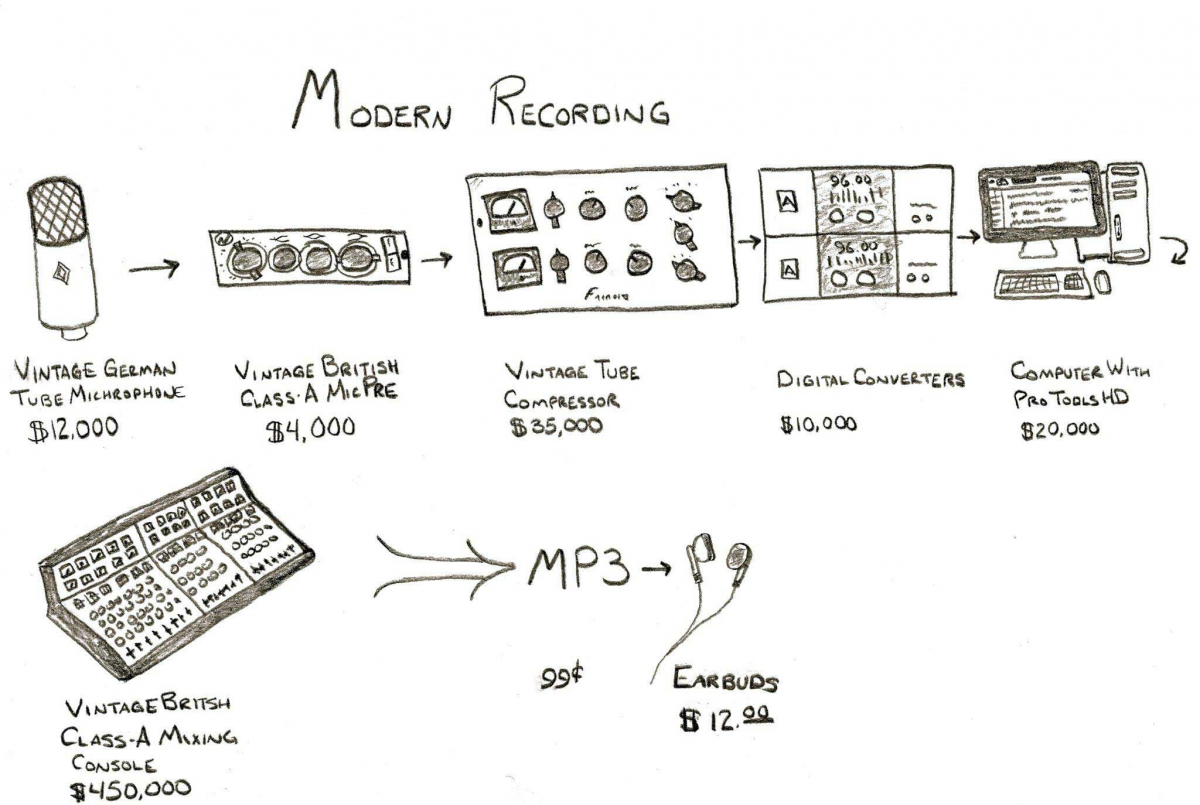 MODERN RECORDING
96.00
A
96.00
A
FAIRCHILD
VINTAGE GERMAN
TUBE MICHROPHONE
$12,000
VINTAGE BRITISH
CLASS-A MICPRE
$4,000
VINTAGE TUBE
COMPRESSOR
$35,000
DIGITAL CONVERTERS
$10,000
COMPUTER WITH
PRO TOOLS HD
$20,000
MP3
99¢
EARBUDS
$12.00
VINTAGE BRITSH
CLASS-A MIXING
CONSOLE
$450,000